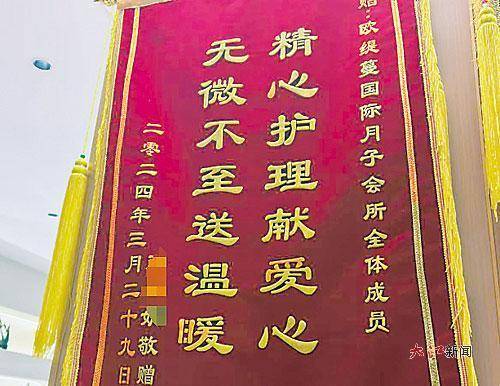 赠：欧缇蔓国际月子会所全体成员
精心护理献爱心
无微不至送温暖
敬赠
二零二四年三月二十九日
大江新闻